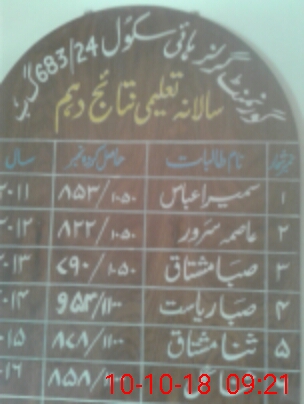 گورنمنٹ گرلز ہائی سکول 683/24 گ ب
سالانہ تعلیمی نتائج دہم
نمبرشمار نام طالبات حاصل کردہ نمبر سال
۱ سمیرا عباس ۸۵۳/۱۰۵۰ ۲۰۱۱
۲ عاصمہ سرور ۸۲۲/۱۰۵۰ ۲۰۱۲
۳ صبا مشتاق ۷۹۰/۱۰۵۰ ۲۰۱۳
۴ صبا ریاست ۹۵۳/۱۱۰۰ ۲۰۱۴
۵ ثنا مشتاق ۸۷۸/۱۱۰۰ ۲۰۱۵
۸۵۸/ ۲۰۱۶
10-10-18 09:21